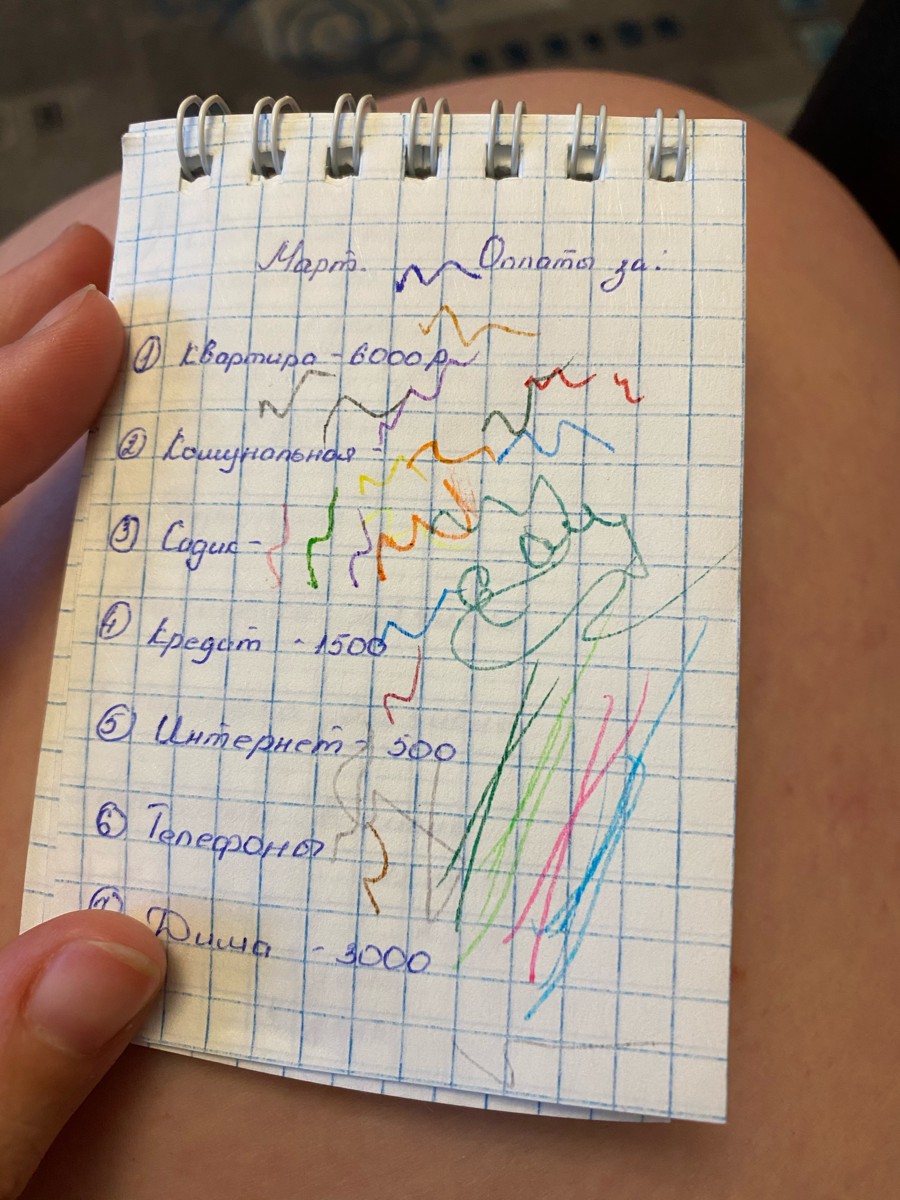 Март. Оплаты за:
① Квартира - 6000р
② Комунальная -
③ Садик -
④ Кредит - 1500
⑤ Интернет - 500
⑥ Телефоны
⑦ Дима - 3000